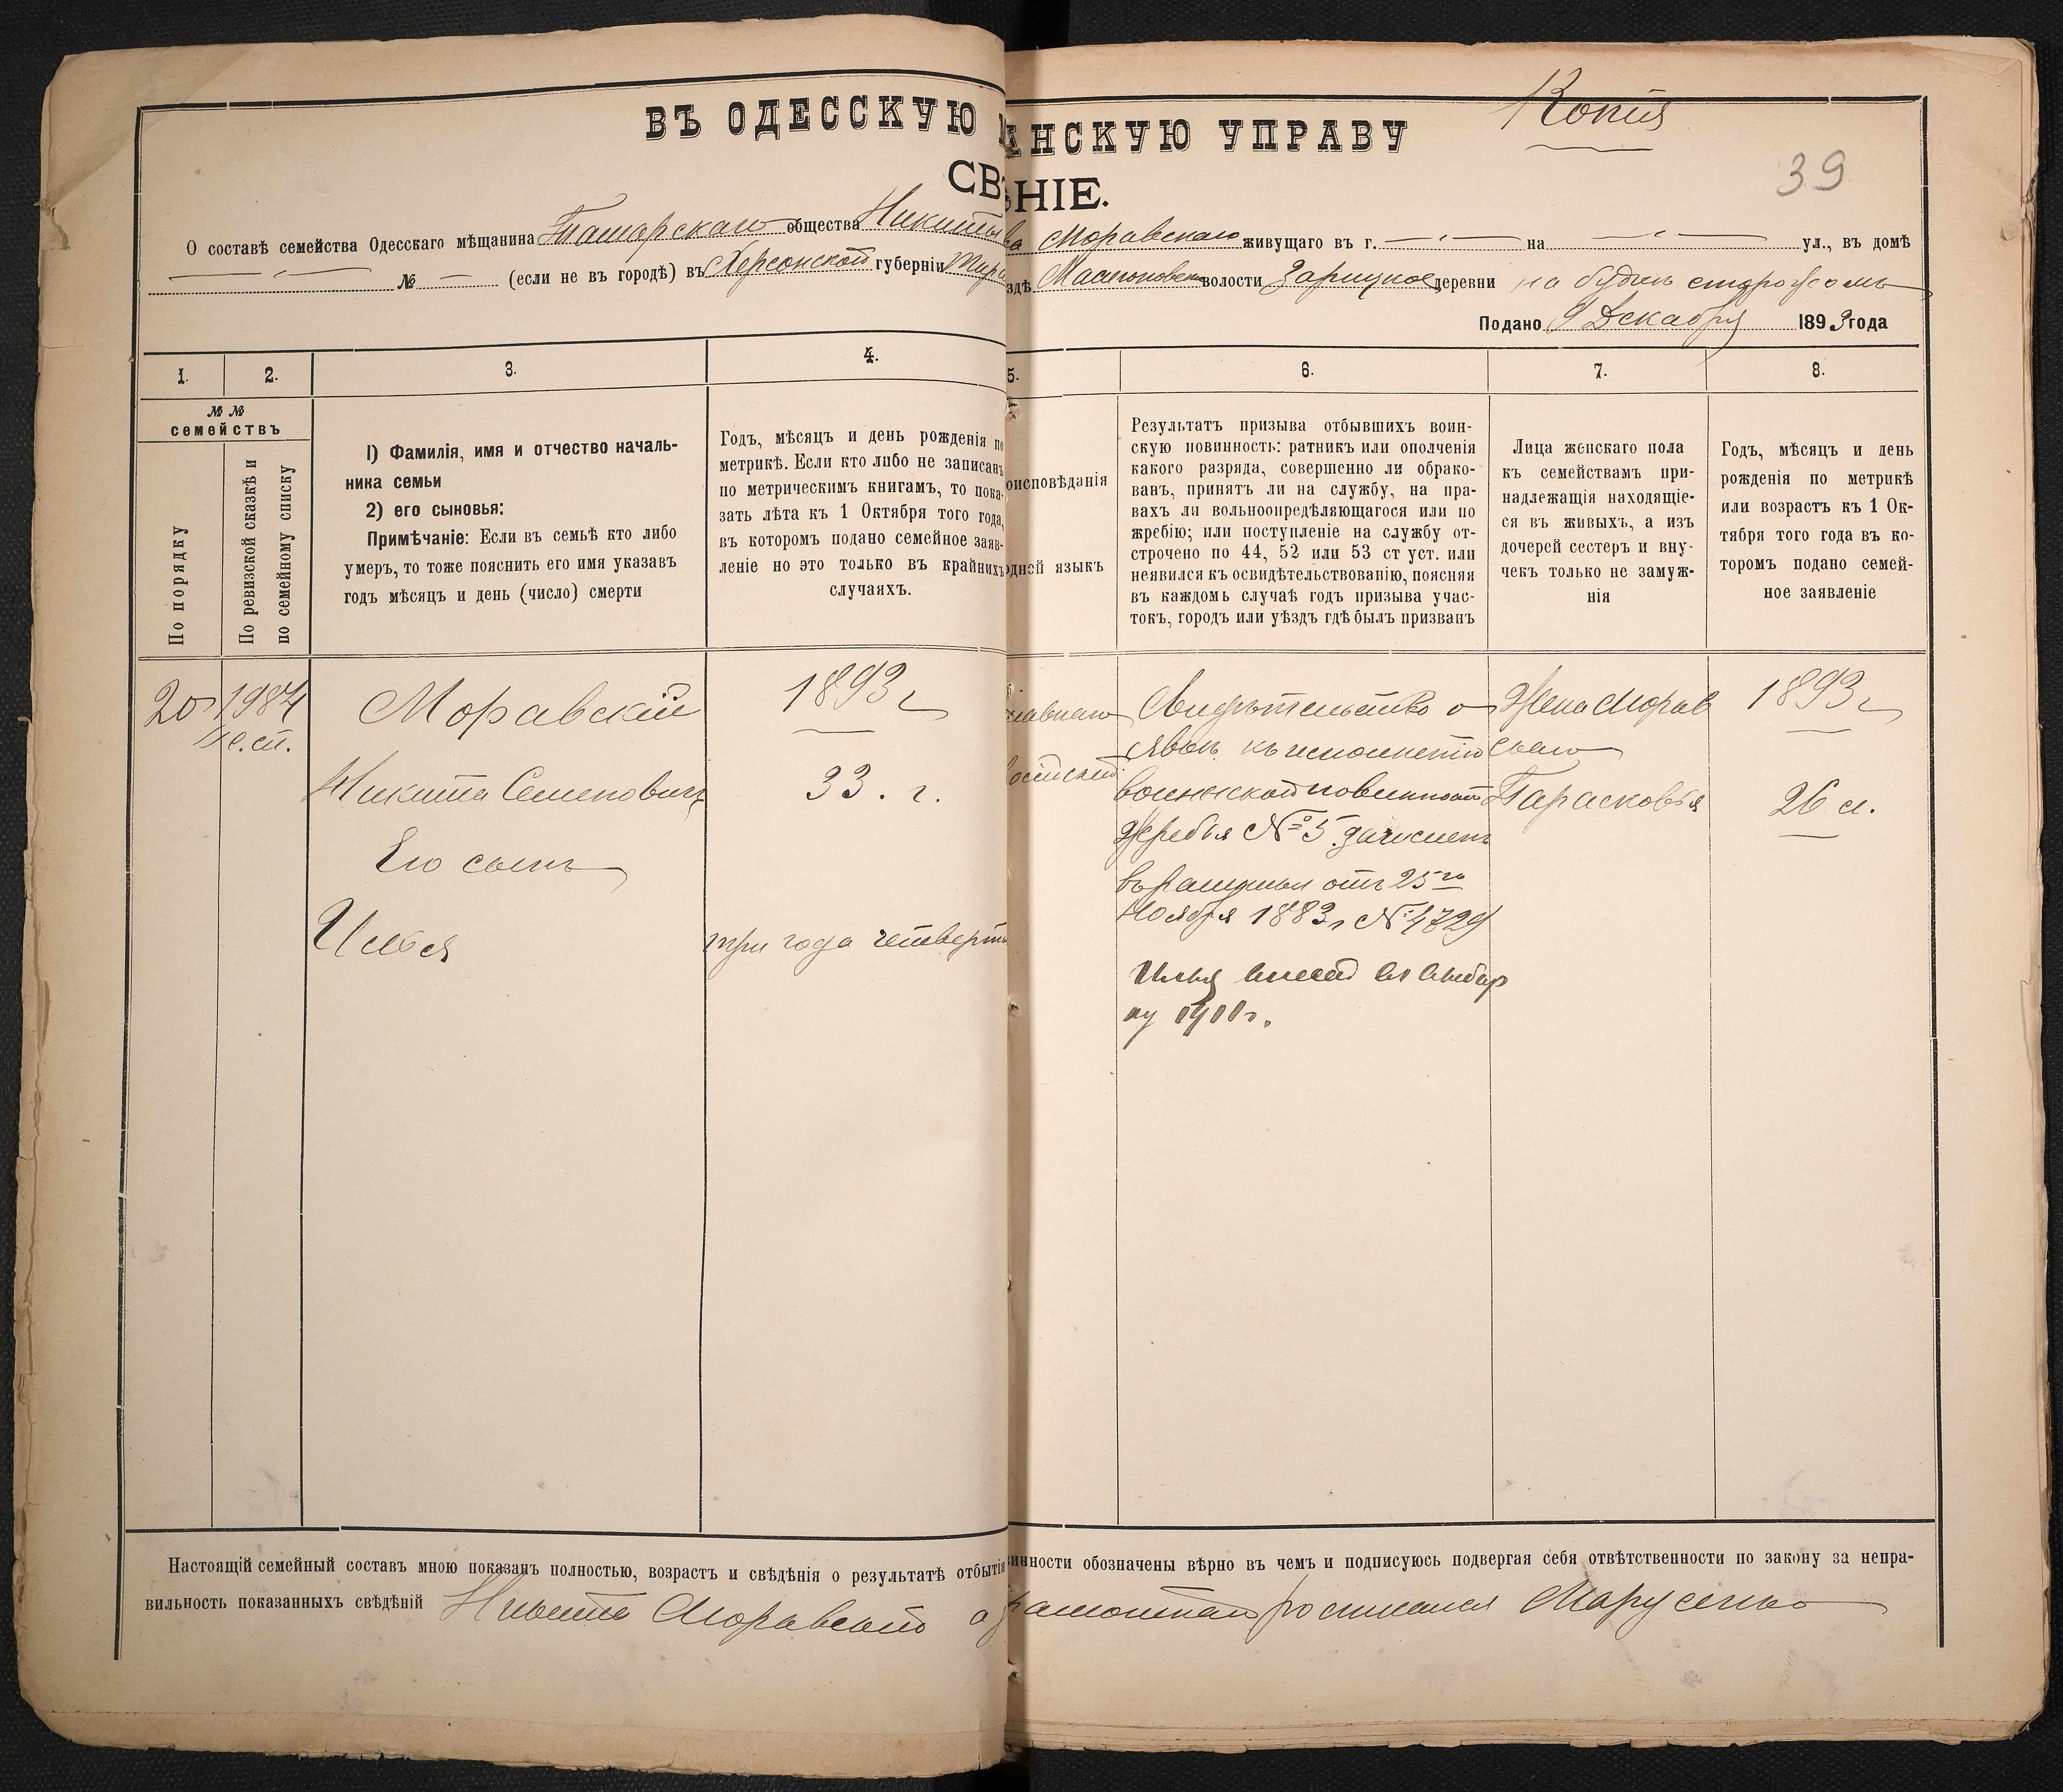 Копія
39
ВЪ ОДЕССКУЮ АНСКУЮ УПРАВУ
СВ ѢНІЕ.
О составѣ семейства Одесскаго мѣщанина Татарскаго общества Никиты Моравскаго живущаго въ г. — на — ул., въ домѣ
— № — (если не въ городѣ) въ Херсонской губерніи Тира здѣ волости деревни на будкѣ сторожемъ
Подано 9 Декабря 1893 года
1. 2. 3. 4. 5. 6. 7. 8.
№ №
семействъ
По порядку
По ревизской сказкѣ и
по семейному списку
1) Фамилія, имя и отчество началь-
ника семьи
2) его сыновья:
Примѣчаніе: Если въ семьѣ кто либо
умеръ, то тоже пояснить его имя указавъ
годъ мѣсяцъ и день (число) смерти
Годъ, мѣсяцъ и день рожденія по
метрикѣ. Если кто либо не записанъ
по метрическимъ книгамъ, то пока-
зать лѣта къ 1 Октября того года,
въ которомъ подано семейное заяв-
леніе но это только въ крайнихъ
случаяхъ.
оисповѣданія
одной языкъ
Результатъ призыва отбывшихъ воин-
скую повинность: ратникъ или ополченія
какого разряда, совершенно ли обрако-
ванъ, принятъ ли на службу, на пра-
вахъ ли вольноопредѣляющагося или по
жребію; или поступленіе на службу от-
строчено по 44, 52 или 53 ст уст. или
неявился къ освидѣтельствованію, поясняя
въ каждомъ случаѣ годъ призыва учас-
токъ, городъ или уѣздъ гдѣ былъ призванъ
Лица женскаго пола
къ семействамъ при-
надлежащія находящіе-
ся въ живыхъ, а изъ
дочерей сестеръ и вну-
чекъ только не замуж-
нія
Годъ, мѣсяцъ и день
рожденія по метрикѣ
или возрастъ къ 1 Ок-
тября того года въ ко-
торомъ подано семей-
ное заявленіе
20
1984
с.сп.
Моравскій
Никита Семеновичъ
Его сынъ
Илья
1893 г
33. г.
три года четверт
славнаго
оссійскій
Свидѣтельство о
явкѣ къ исполненію
воинской повинности
Жеребья № 5 зачисленъ
въ ратники отъ 25го
Ноября 1883 г № 4729
Илья внесенъ въ
ку г.
Жена Морав
скаго
Парасковья
1893 г
26 л.
Настоящій семейный составъ мною показанъ полностью, возрастъ и свѣдѣнія о результатѣ отбытія инности обозначены вѣрно въ чемъ и подписуюсь подвергая себя отвѣтственности по закону за непра-
вильность показанныхъ свѣдѣній Никита Моравскій росписался